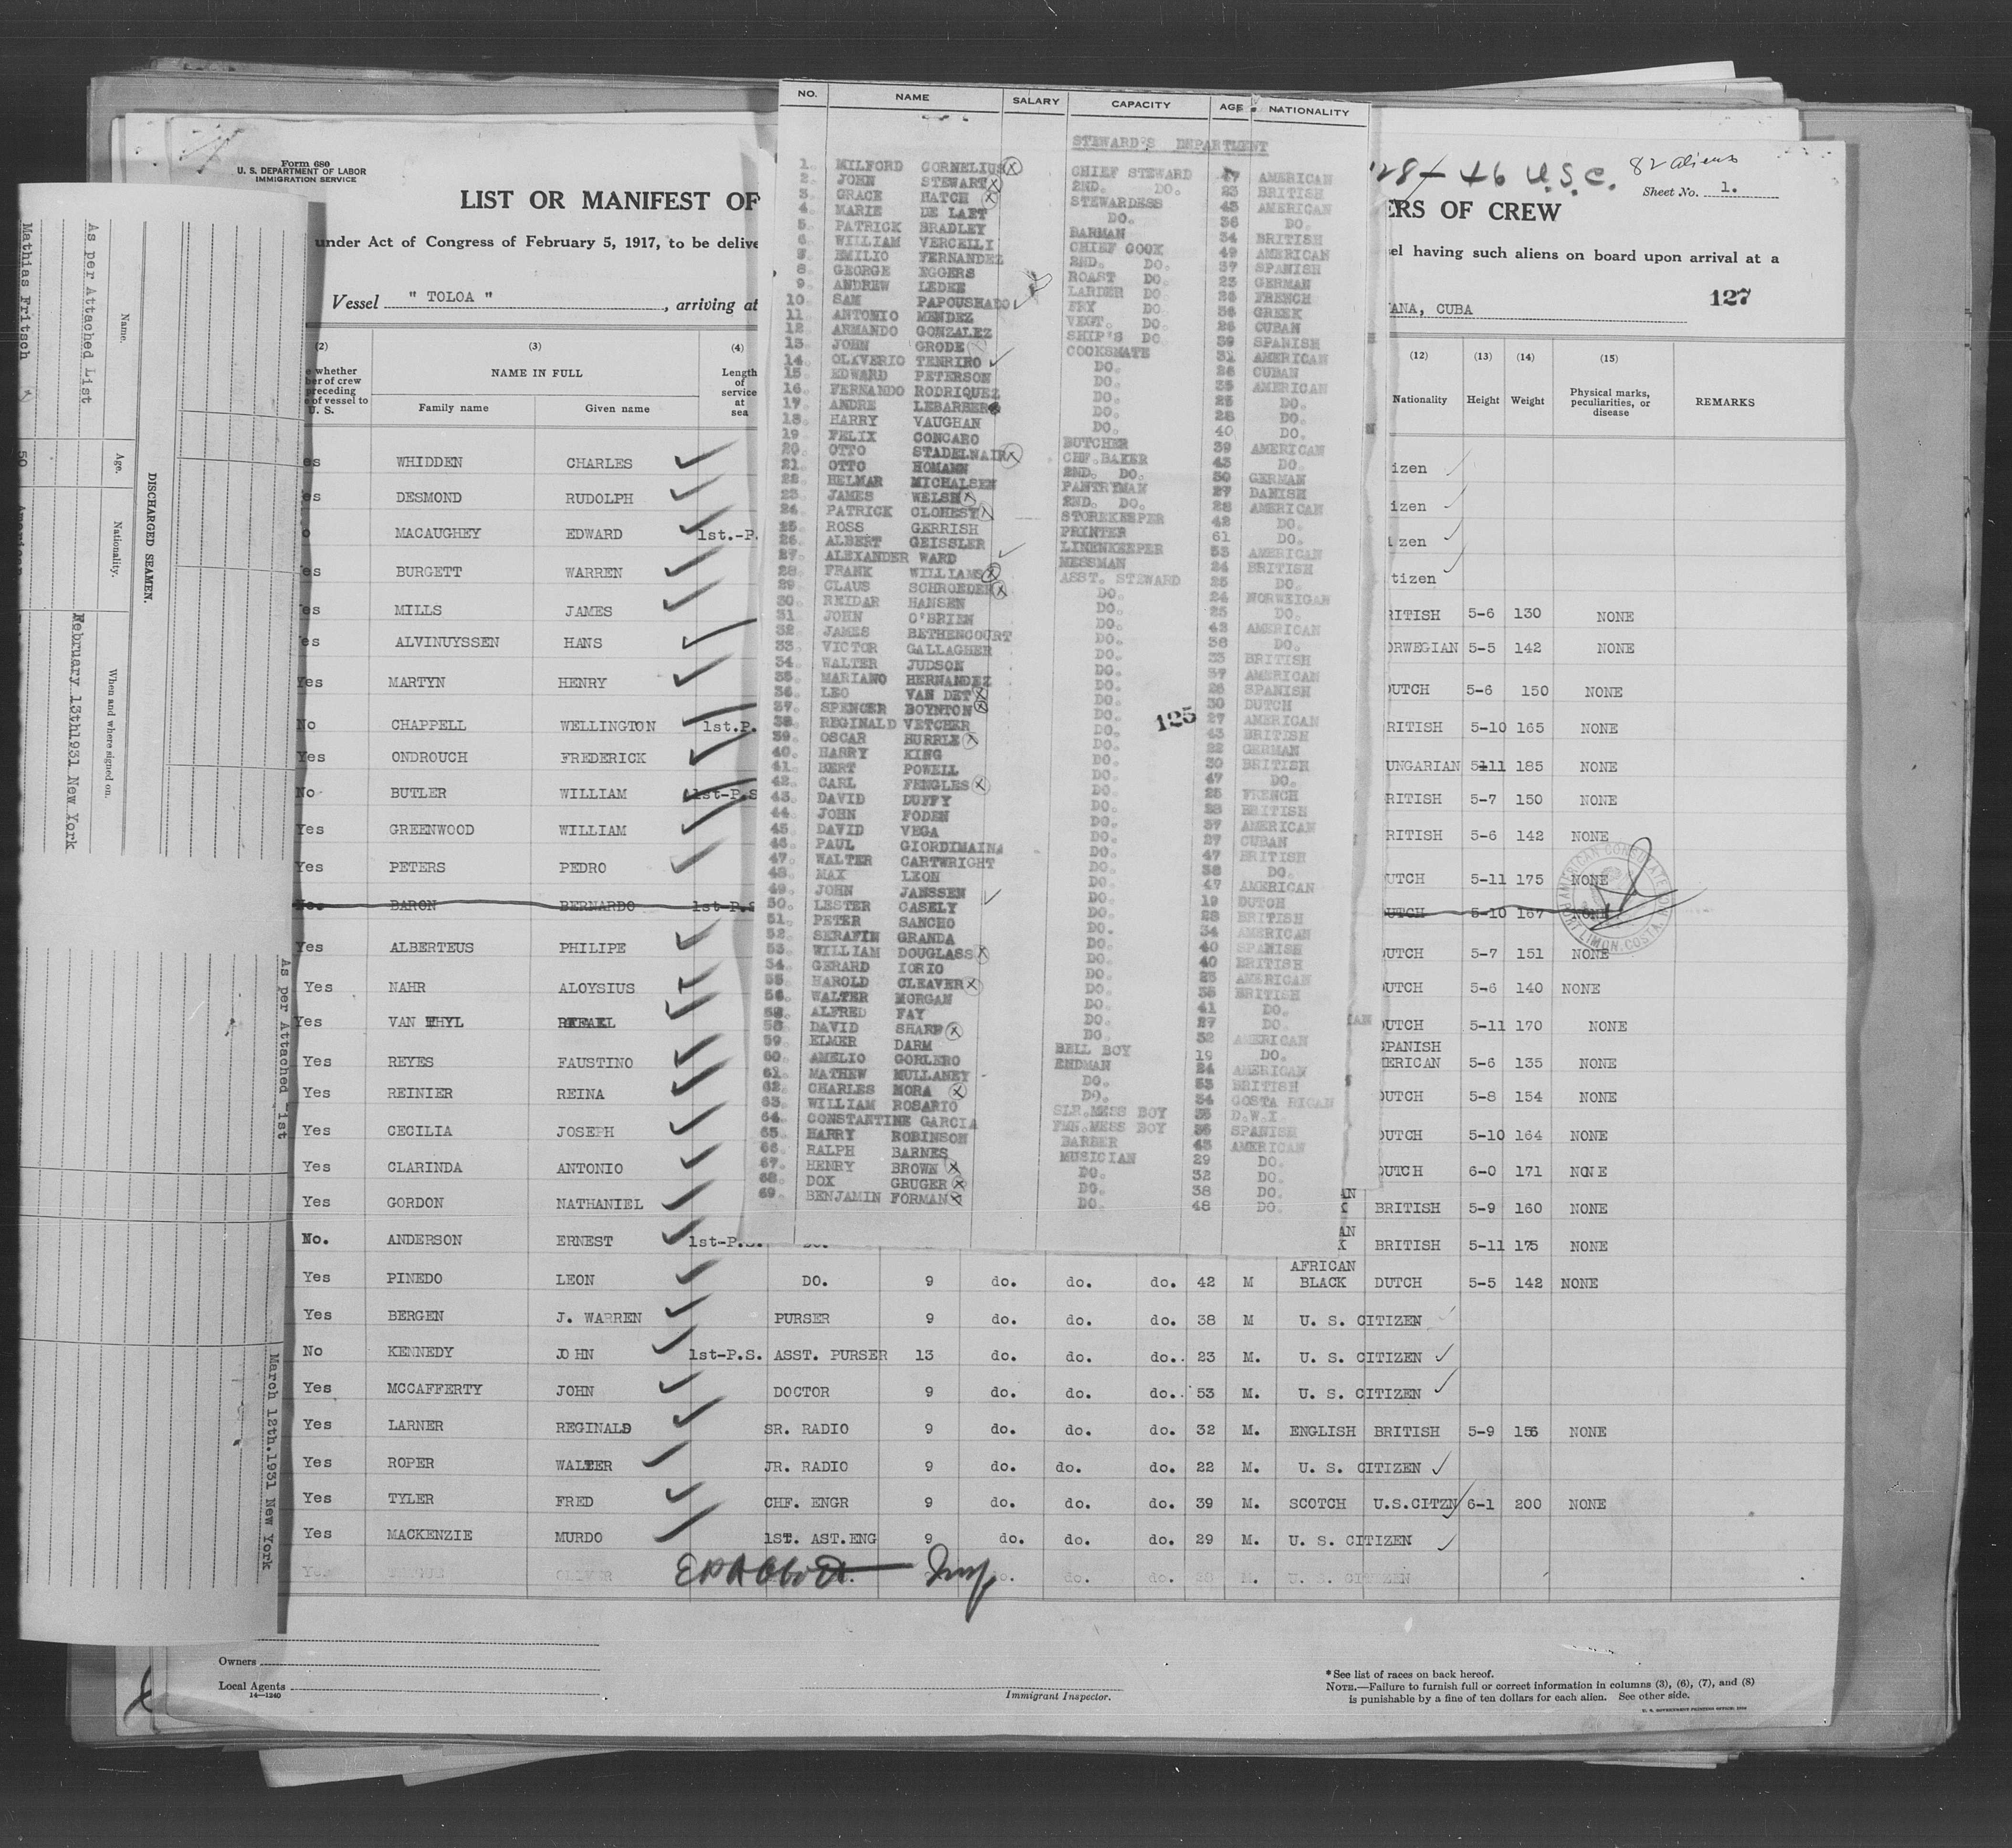 Form 680
U. S. DEPARTMENT OF LABOR
IMMIGRATION SERVICE
LIST OR MANIFEST OF
ERS OF CREW
82 aliens
Sheet No. 1.
+46 U.S.C.
under Act of Congress of February 5, 1917, to be delive
el having such aliens on board upon arrival at a
Vessel " TOLOA " , arriving at
ANA, CUBA
127
(2) (3) (4) (12) (13) (14) (15)
whether
er of crew
preceding
of vessel to
U. S.
NAME IN FULL
Family name Given name
Length
of
service
at
sea
Nationality Height Weight
Physical marks,
peculiarities, or
disease
REMARKS
es WHIDDEN CHARLES izen
es DESMOND RUDOLPH izen
o MACAUGHEY EDWARD 1st.-P. izen
es BURGETT WARREN tizen
es MILLS JAMES RITISH 5-6 130 NONE
es ALVINUYSSEN HANS ORWEGIAN 5-5 142 NONE
Yes MARTYN HENRY DUTCH 5-6 150 NONE
No CHAPPELL WELLINGTON 1st.P. RITISH 5-10 165 NONE
Yes ONDROUCH FREDERICK UNGARIAN 5-11 185 NONE
No BUTLER WILLIAM 1st-P.S RITISH 5-7 150 NONE
Yes GREENWOOD WILLIAM RITISH 5-6 142 NONE
Yes PETERS PEDRO DUTCH 5-11 175 NONE
BARON BERNARDO 1st-P.S DUTCH 5-10 167 NONE
Yes ALBERTEUS PHILIPE DUTCH 5-7 151 NONE
Yes NAHR ALOYSIUS DUTCH 5-6 140 NONE
Yes VAN THYL RAFAEL DUTCH 5-11 170 NONE
Yes REYES FAUSTINO SPANISH MERICAN 5-6 135 NONE
Yes REINIER REINA DUTCH 5-8 154 NONE
Yes CECILIA JOSEPH DUTCH 5-10 164 NONE
Yes CLARINDA ANTONIO DUTCH 6-0 171 NONE
Yes GORDON NATHANIEL BRITISH 5-9 160 NONE
No. ANDERSON ERNEST 1st-P.S. BRITISH 5-11 175 NONE
Yes PINEDO LEON DO. 9 do. do. do. 42 M AFRICAN BLACK DUTCH 5-5 142 NONE
Yes BERGEN J. WARREN PURSER 9 do. do. do. 38 M U. S. CITIZEN
No KENNEDY JOHN 1st-P.S. ASST. PURSER 13 do. do. do. 23 M. U. S. CITIZEN
Yes MCCAFFERTY JOHN DOCTOR 9 do. do. do. 53 M. U. S. CITIZEN
Yes LARNER REGINALD SR. RADIO 9 do. do. do. 32 M. ENGLISH BRITISH 5-9 156 NONE
Yes ROPER WALTER JR. RADIO 9 do. do. do. 22 M. U. S. CITIZEN
Yes TYLER FRED CHF. ENGR 9 do. do. do. 39 M. SCOTCH U.S.CITZN 6-1 200 NONE
Yes MACKENZIE MURDO 1ST. AST.ENG 9 do. do. do. 29 M. U. S. CITIZEN
OLIVER do. do. M. U. S. CITIZEN
Owners
Local Agents
14—1240
Immigrant Inspector.
*See list of races on back hereof.
NOTE.—Failure to furnish full or correct information in columns (3), (6), (7), and (8)
is punishable by a fine of ten dollars for each alien. See other side.
AMERICAN CONSULATE
LIMON, COSTA
NO. NAME SALARY CAPACITY AGE NATIONALITY
STEWARD'S DEPARTMENT
1. MILFORD CORNELIUS CHIEF STEWARD 47 AMERICAN
2. JOHN STEWART 2ND. DO. 23 BRITISH
3. GRACE HATCH STEWARDESS 45 AMERICAN
4. MARIE DE LAET DO. 36 DO.
5. PATRICK BRADLEY BARMAN 34 BRITISH
6. WILLIAM VERCELLI CHIEF COOK 49 AMERICAN
7. EMILIO FERNANDEZ 2ND. DO. 37 SPANISH
8. GEORGE EGGERS ROAST DO. 23 GERMAN
9. ANDREW LEDEE LARDER DO. 26 FRENCH
10. SAM PAPOUSHADO FRY DO. 36 GREEK
11. ANTONIO MENDEZ VEGT. DO. 26 CUBAN
12. ARMANDO GONZALEZ SHIP'S DO 39 SPANISH
13. JOHN GRODE COOKSMATE 31 AMERICAN
14. OLIVERIO TENRIRO DO. 26 CUBAN
15. EDWARD PETERSON DO. 35 AMERICAN
16. FERNANDO RODRIQUEZ DO. 25 DO.
17. ANDRE LEBARBER DO. 28 DO.
18. HARRY VAUGHAN DO. 40 DO.
19. FELIX CONCARO BUTCHER 39 AMERICAN
20. OTTO STADELNAIR CHF.BAKER 43 DO.
21. OTTO HOMANN 2ND. DO. 30 GERMAN
22. HELMAR MICHALSEN PANTRYMAN 27 DANISH
23. JAMES WELSH 2ND. DO. 28 AMERICAN
24. PATRICK CLOHESY STOREKEEPER 42 DO.
25. ROSS GERRISH PRINTER 61 DO.
26. ALBERT GEISSLER LINENKEEPER 53 AMERICAN
27. ALEXANDER WARD MESSMAN 24 BRITISH
28. FRANK WILLIAMS ASST. STEWARD 25 DO.
29. CLAUS SCHROEDER DO. 24 NORWEIGAN
30. REIDAR HANSEN DO. 25 DO.
31. JOHN O'BRIEN DO. 43 AMERICAN
32. JAMES BETHENCOURT DO. 38 DO.
33. VICTOR GALLAGHER DO. 33 BRITISH
34. WALTER JUDSON DO. 37 AMERICAN
35. MARIANO HERNANDEZ DO. 26 SPANISH
36. LEO VAN DET DO. 30 DUTCH
37. SPENCER BOYNTON DO. 27 AMERICAN
38. REGINALD VETCHER DO. 43 BRITISH
39. OSCAR HURRLE DO. 22 GERMAN
40. HARRY KING DO. 30 BRITISH
41. BERT POWELL DO. 47 DO.
42. CARL FENGLES DO. 25 FRENCH
43. DAVID DUFFY DO. 28 BRITISH
44. JOHN FODEN DO. 37 AMERICAN
45. DAVID VEGA DO. 27 CUBAN
46. PAUL GIORDIMAINA DO. 47 BRITISH
47. WALTER CARTWRIGHT DO. 38 DO.
48. MAX LEON DO. 47 AMERICAN
49. JOHN JANSSEN DO. 19 DUTCH
50. LESTER CASELY DO. 28 BRITISH
51. PETER SANCHO DO. 34 AMERICAN
52. SERAFIN GRANDA DO. 40 SPANISH
53. WILLIAM DOUGLASS DO. 40 BRITISH
54. GERARD IORIO DO. 23 AMERICAN
55. HAROLD CLEAVER DO. 36 BRITISH
56. WALTER MORGAN DO. 41 DO.
58. ALFRED FAY DO. 27 DO.
58. DAVID SHARP DO. 32 AMERICAN
59. ELMER DARM BELL BOY 19 DO.
60. AMELIO GORLERO ENDMAN 24 AMERICAN
61. MATHEW MULLANEY DO. 53 BRITISH
62. CHARLES MORA DO. 34 COSTA RICAN
63. WILLIAM ROSARIO SLR.MESS BOY 35 D.W.I.
64. CONSTANTINE GARCIA FMN.MESS BOY 36 SPANISH
65. HARRY ROBINSON BARBER 43 AMERICAN
66. RALPH BARNES MUSICIAN 29 DO.
67. HENRY BROWN DO. 32 DO.
68. DOX GRUGER DO. 38 DO.
69. BENJAMIN FORMAN DO. 48 DO.
125
DISCHARGED SEAMEN.
Name. Age. Nationality. When and where signed on.
As per Attached List
Mathias Fritsch 50 American February 13th1931 New York
As per Attached List March 12th.1931 New York